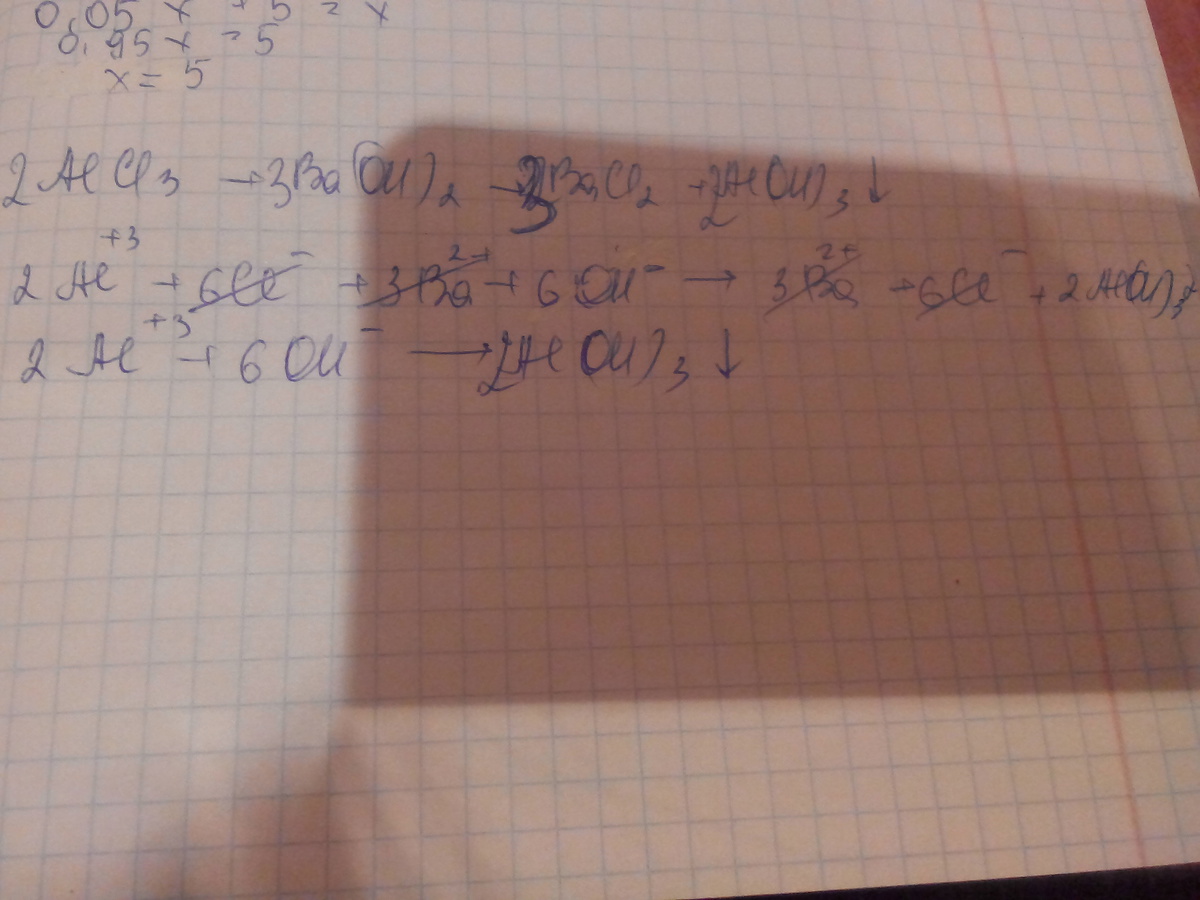 0,05 x + 5 = x
0,95 x = 5
x = 5
2AlCl₃ + 3Ba(OH)₂ → 3BaCl₂ + 2Al(OH)₃↓
2Al⁺³ + 6Cl⁻ + 3Ba²⁺ + 6OH⁻ → 3Ba²⁺ + 6Cl⁻ + 2Al(OH)₃↓
2Al⁺³ + 6OH⁻ → 2Al(OH)₃↓